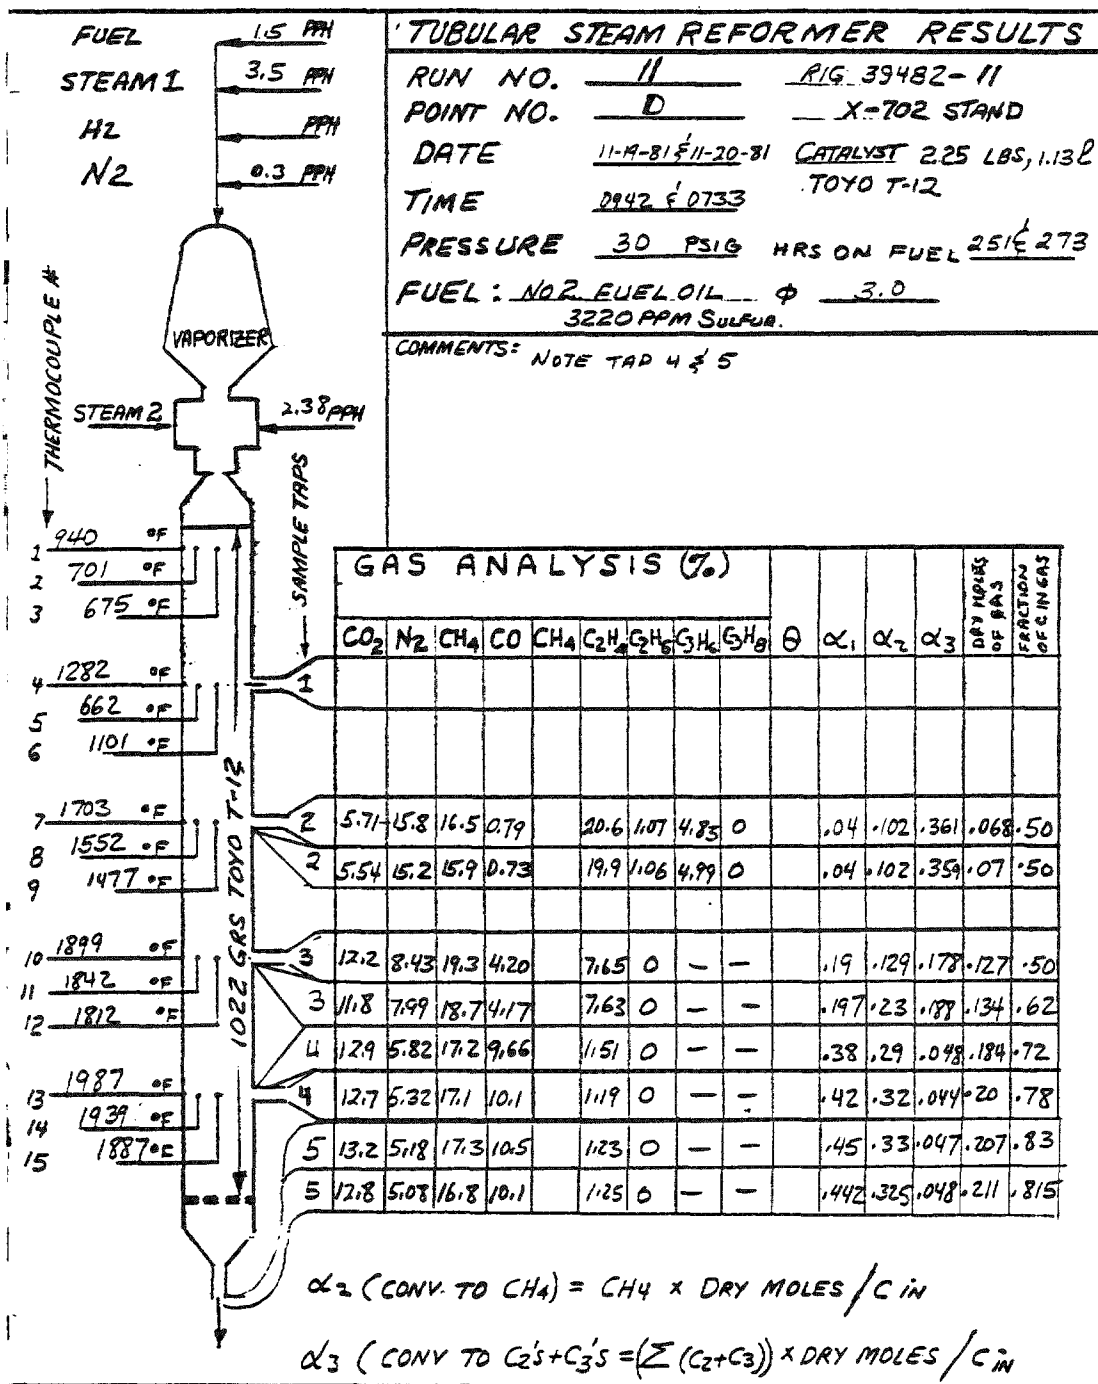 TUBULAR STEAM REFORMER RESULTS
FUEL 1.5 PPH
STEAM 1 3.5 PPH
H2 PPH
N2 0.3 PPH
RUN NO. 11 RIG 39482-11
POINT NO. D X-702 STAND
DATE 11-19-81 & 11-20-81 CATALYST 2.25 LBS, 1.13 l
TOYO T-12
TIME 0942 & 0733
PRESSURE 30 PSIG HRS ON FUEL 251 & 273
FUEL: NO 2 FUEL OIL Φ 3.0
3220 PPM SULFUR.
COMMENTS: NOTE TAP 4 & 5
VAPORIZER
STEAM 2 2.38 PPH
THERMOCOUPLE #
SAMPLE TAPS
1 940 °F
2 701 °F
3 675 °F
4 1282 °F
5 662 °F
6 1101 °F
7 1703 °F
8 1552 °F
9 1477 °F
10 1899 °F
11 1842 °F
12 1812 °F
13 1987 °F
14 1939 °F
15 1887 °F
1022 GRS TOYO T-12
GAS ANALYSIS (%)
CO2 N2 CH4 CO CH4 C2H4 C2H6 C3H6 C3H8 Θ α1 α2 α3 DRY MOLES OF GAS FRACTION OF C IN GAS
1
2 5.71 15.8 16.5 0.79 20.6 1.07 4.83 0 .04 .102 .361 .068 .50
2 5.54 15.2 15.9 0.73 19.9 1.06 4.99 0 .04 .102 .359 .07 .50
3 12.2 8.43 19.3 4.20 7.65 0 — — .19 .129 .178 .127 .50
3 11.8 7.99 18.7 4.17 7.63 0 — — .197 .23 .188 .134 .62
4 12.9 5.82 17.2 9.66 1.51 0 — — .38 .29 .048 .184 .72
4 12.7 5.32 17.1 10.1 1.19 0 — — .42 .32 .044 .20 .78
5 13.2 5.18 17.3 10.5 1.23 0 — — .45 .33 .047 .207 .83
5 12.8 5.08 16.8 10.1 1.25 0 — — .442 .325 .048 .211 .815
α2 (CONV. TO CH4) = CH4 × DRY MOLES / C IN
α3 (CONV TO C2's + C3's = (Σ (C2+C3)) × DRY MOLES / C IN